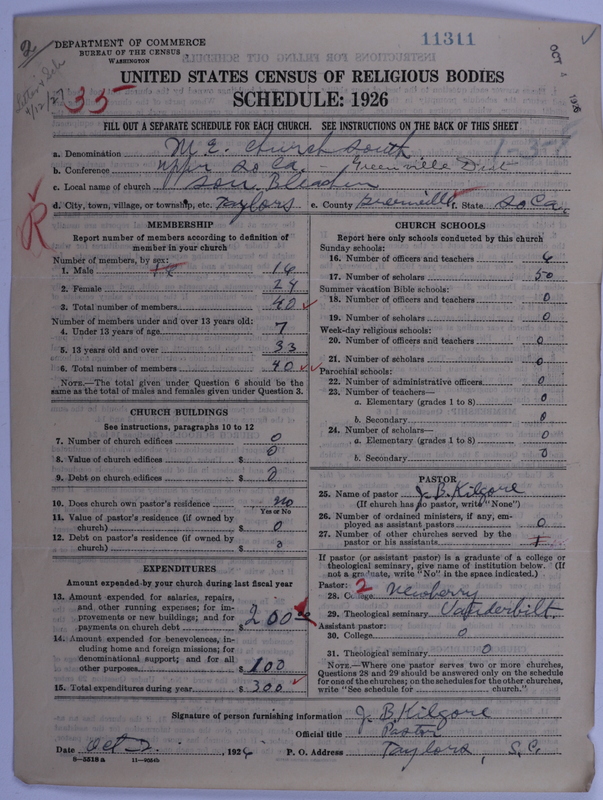 2
DEPARTMENT OF COMMERCE
BUREAU OF THE CENSUS
WASHINGTON
11311
OCT 4 1926
4/12/27
35
UNITED STATES CENSUS OF RELIGIOUS BODIES
SCHEDULE: 1926
FILL OUT A SEPARATE SCHEDULE FOR EACH CHURCH. SEE INSTRUCTIONS ON THE BACK OF THIS SHEET
a. Denomination M.E. Church South
b. Conference Uppr So Ca. - Greenville Dist
c. Local name of church Sou. Bleachery
d. City, town, village, or township, etc. Taylors e. County Greenville f. State So Ca.
R
MEMBERSHIP
Report number of members according to definition of member in your church
Number of members, by sex:
1. Male 16
2. Female 24
3. Total number of members 40
Number of members under and over 13 years old:
4. Under 13 years of age 7
5. 13 years old and over 33
6. Total number of members 40
NOTE.—The total given under Question 6 should be the same as the total of males and females given under Question 3.
CHURCH BUILDINGS
See instructions, paragraphs 10 to 12
7. Number of church edifices 0
8. Value of church edifices $ 0
9. Debt on church edifices $ 0
10. Does church own pastor's residence No
Yes or No
11. Value of pastor's residence (if owned by church) $ 0
12. Debt on pastor's residence (if owned by church) $ 0
EXPENDITURES
Amount expended by your church during last fiscal year
13. Amount expended for salaries, repairs, and other running expenses; for improvements or new buildings; and for payments on church debt $ 200.00
14. Amount expended for benevolences, including home and foreign missions; for denominational support; and for all other purposes $ 100
15. Total expenditures during year $ 300
CHURCH SCHOOLS
Report here only schools conducted by this church
Sunday schools:
16. Number of officers and teachers 6
17. Number of scholars 50
Summer vacation Bible schools:
18. Number of officers and teachers 0
19. Number of scholars 0
Week-day religious schools:
20. Number of officers and teachers 0
21. Number of scholars 0
Parochial schools:
22. Number of administrative officers 0
23. Number of teachers—
a. Elementary (grades 1 to 8) 0
b. Secondary 0
24. Number of scholars—
a. Elementary (grades 1 to 8) 0
b. Secondary 0
PASTOR
25. Name of pastor J. B. Kilgore
(If church has no pastor, write "None")
26. Number of ordained ministers, if any, employed as assistant pastors 0
27. Number of other churches served by the pastor or his assistants 1
If pastor (or assistant pastor) is a graduate of a college or theological seminary, give name of institution below. (If not a graduate, write "No" in the space indicated.)
Pastor: 2
28. College Newberry
29. Theological seminary Vanderbilt
Assistant pastor:
30. College 0
31. Theological seminary 0
NOTE.—Where one pastor serves two or more churches, Questions 28 and 29 should be answered only on the schedule for one of the churches; on the schedules for the other churches, write "See schedule for church."
Signature of person furnishing information J. B. Kilgore
Official title Pastor
Date Oct 2. , 1926 P. O. Address Taylors, S.C.
9-5518 a